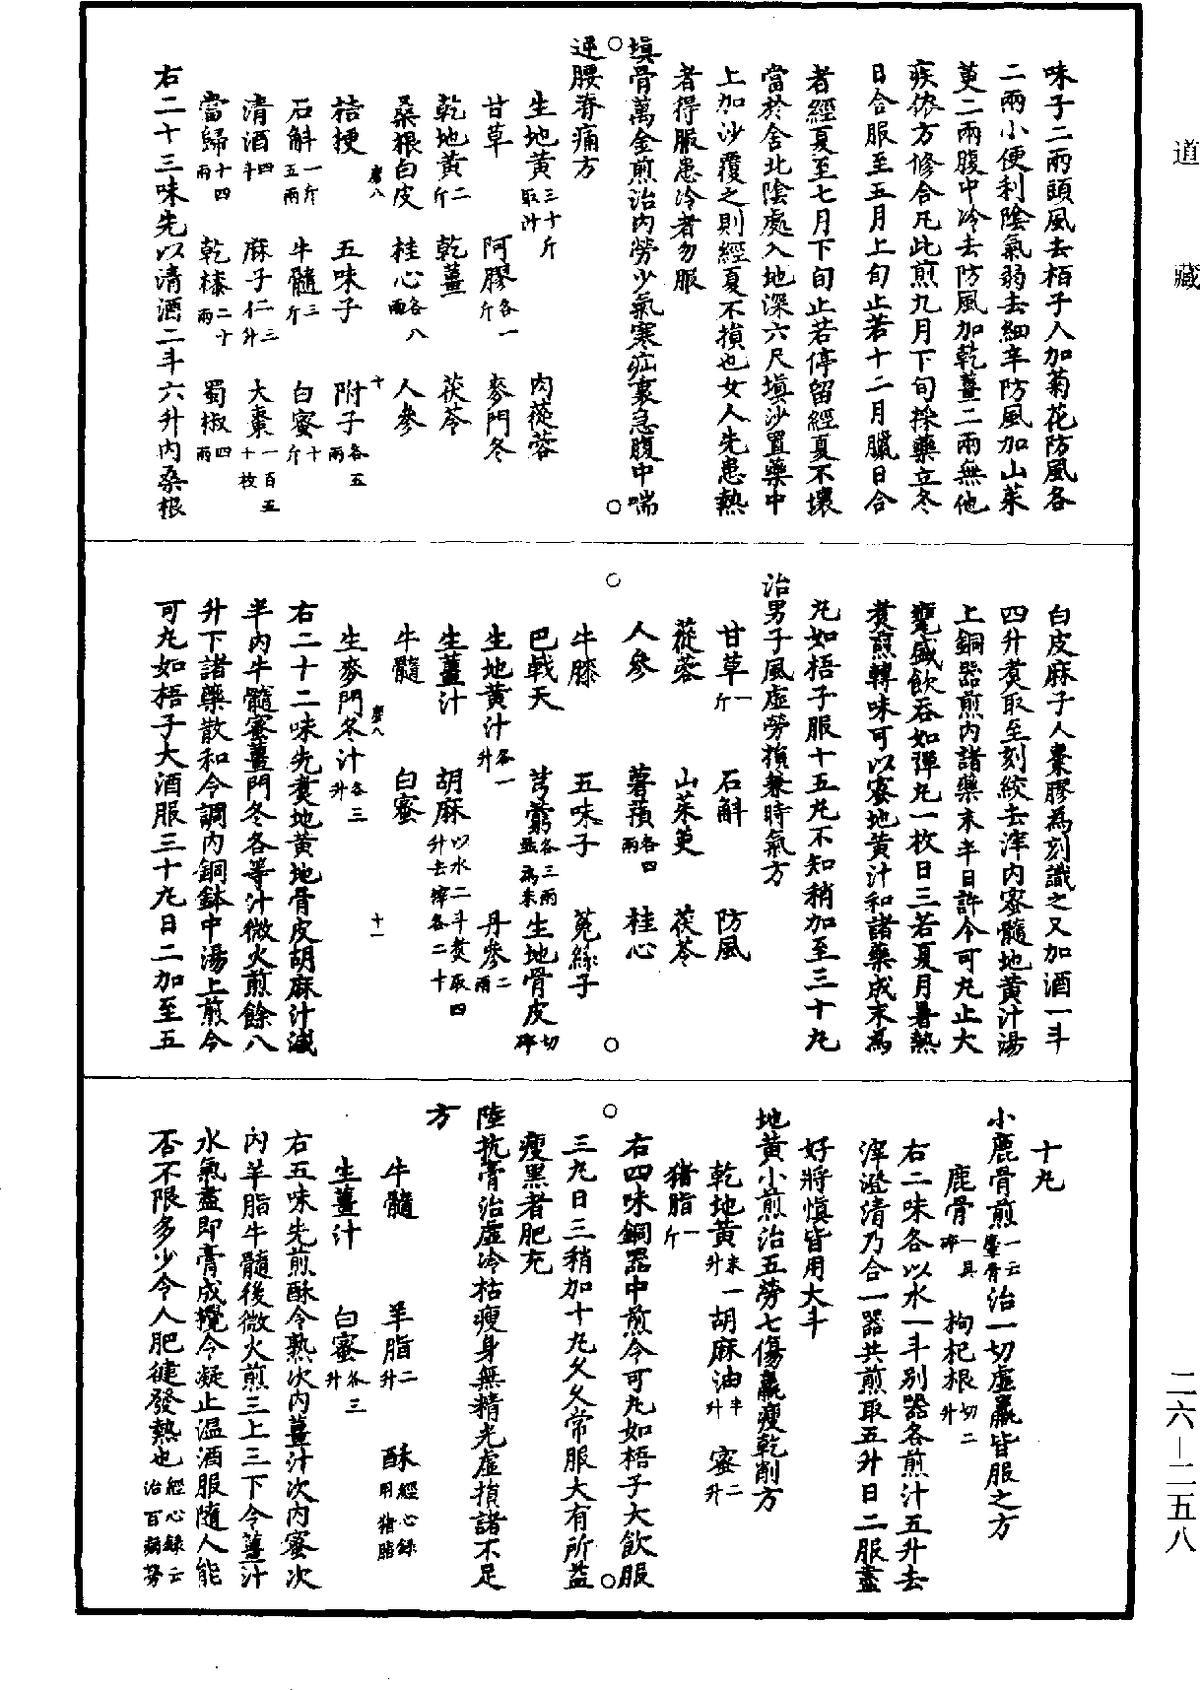 道藏
味子二兩頭風去栢子人加菊花防風各
二兩小便利陰氣弱去細辛防風加山茱
萸二兩腹中冷去防風加乾薑二兩無他
疾依方修合凡此煎九月下旬採藥立冬
日合服至五月上旬止若十二月臘日合
者經夏至七月下旬止若停留經夏不壞
當於舍北陰處入地深六尺塡沙置藥中
上加沙覆之則經夏不損也女人先患熱
者得服患冷者勿服
塡骨萬金煎治內勞少氣寒疝裏急腹中喘
逆腰脊痛方
生地黃三十斤取汁 肉蓯蓉
甘草 阿膠各一斤 麥門冬
乾地黃二斤 乾薑 茯苓
桑根白皮 桂心各八兩 人參
桔梗 五味子 附子各五兩
石斛一斤五兩 牛髓三斤 白蜜十斤
清酒四斗 麻子仁三升 大棗一百五十枚
當歸十四兩 乾𣾰二十兩 蜀椒四兩
右二十三味先以清酒二斗六升內桑根
白皮麻子人棗膠爲刻識之又加酒一斗
四升煑取至刻絞去滓內蜜髓地黃汁湯
上銅器煎內諸藥末半日許令可丸止大
甕盛飲吞如彈丸一枚日三若夏月暑熱
煑煎轉味可以蜜地黃汁和諸藥成末爲
丸如梧子服十五丸不知稍加至三十丸
治男子風虛勞損兼時氣方
甘草一斤 石斛 防風
蓯蓉 山茱萸 茯苓
人參 薯蕷各四兩 桂心
牛膝 五味子 菟絲子
巴戟天 芎藭各三兩並爲末 生地骨皮切碎
生地黃汁各一升 丹參二兩
生薑汁 胡麻以水二斗煑取四升去滓各二十
牛髓 白蜜
生麥門冬汁各三升
右二十二味先煑地黃地骨皮胡麻汁減
半內牛髓蜜薑門冬各等汁微火煎餘八
升下諸藥散和令調內銅鉢中湯上煎令
可丸如梧子大酒服三十丸日二加至五
十丸
小鹿骨煎一云麞骨治一切虛羸皆服之方
鹿骨一具碎 枸杞根切二升
右二味各以水一斗別器各煎汁五升去
滓澄清乃合一器共煎取五升日二服盡
好將愼皆用大斗
地黃小煎治五勞七傷羸瘦乾削方
乾地黃末一升 胡麻油半升 蜜二升
猪脂一斤
右四味銅器中煎令可丸如梧子大飲服
三丸日三稍加十丸久久常服大有所益
瘦黑者肥充
陸抗膏治虛冷枯瘦身無精光虛損諸不足
方
牛髓 羊脂二升 酥經心錄用猪脂
生薑汁 白蜜各三升
右五味先煎酥令熟次內薑汁次內蜜次
內羊脂牛髓後微火煎三上三下令薑汁
水氣盡即膏成攪令凝止温酒服隨人能
否不限多少令人肥健發熱也經心錄云治百病勞
二六—二五八